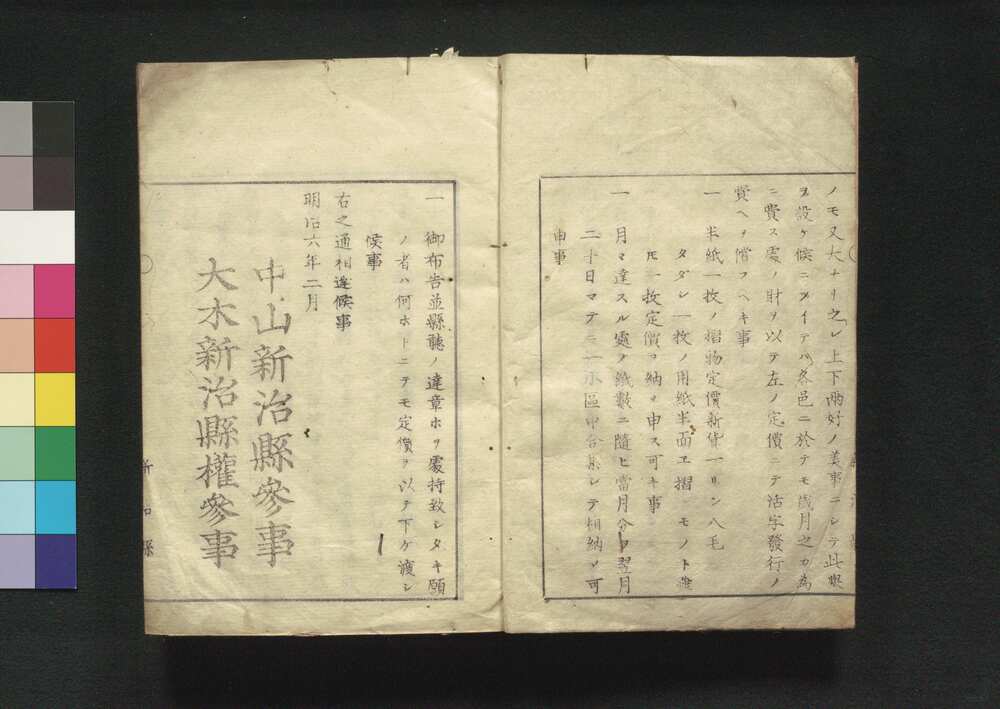 ノモ又大ナリ之レ上下兩好ノ美事ニシテ此擧
ヲ設ケ候ニツイテハ各邑ニ於テモ歳月之カ為
ニ費ス處ノ財ヲ以テ左ノ定價ニテ活字發行ノ
費ヘヲ償フヘキ事
一 半紙一枚ノ摺物定價新貨一リン八毛
タダシ一枚ノ用紙半面ヱ摺 モノト雖
モ一枚定價ヲ納メ申ス可キ事
一 月々達スル處ノ紙數ニ隨ヒ當月分ヲ翌月
二十日マテニ一小區申合集シテ相納メ可
申事
一 御布告並縣聽ノ達章ホヲ處持致シタキ願
ノ者ハ何ホトニテモ定價ヲ以テ下ケ渡シ
候事
右之通相達候事
明治六年二月
中山新治縣參事
大木新治縣權參事
新治縣